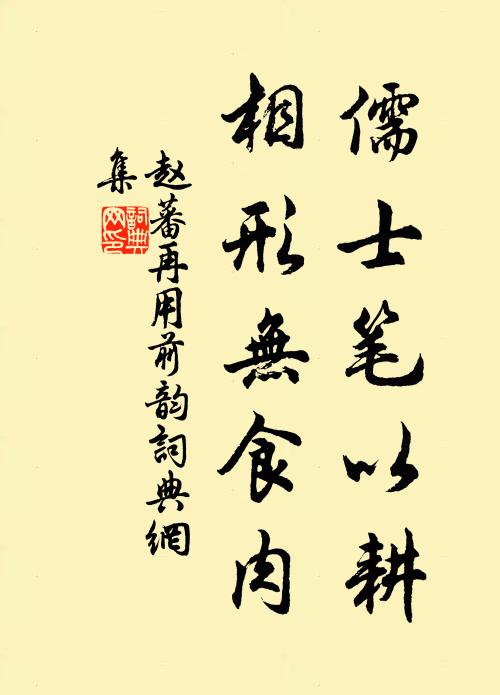 儒士笔以耕
相形無食肉
赵蕃再用前韵詞典網
集
詞典
网印